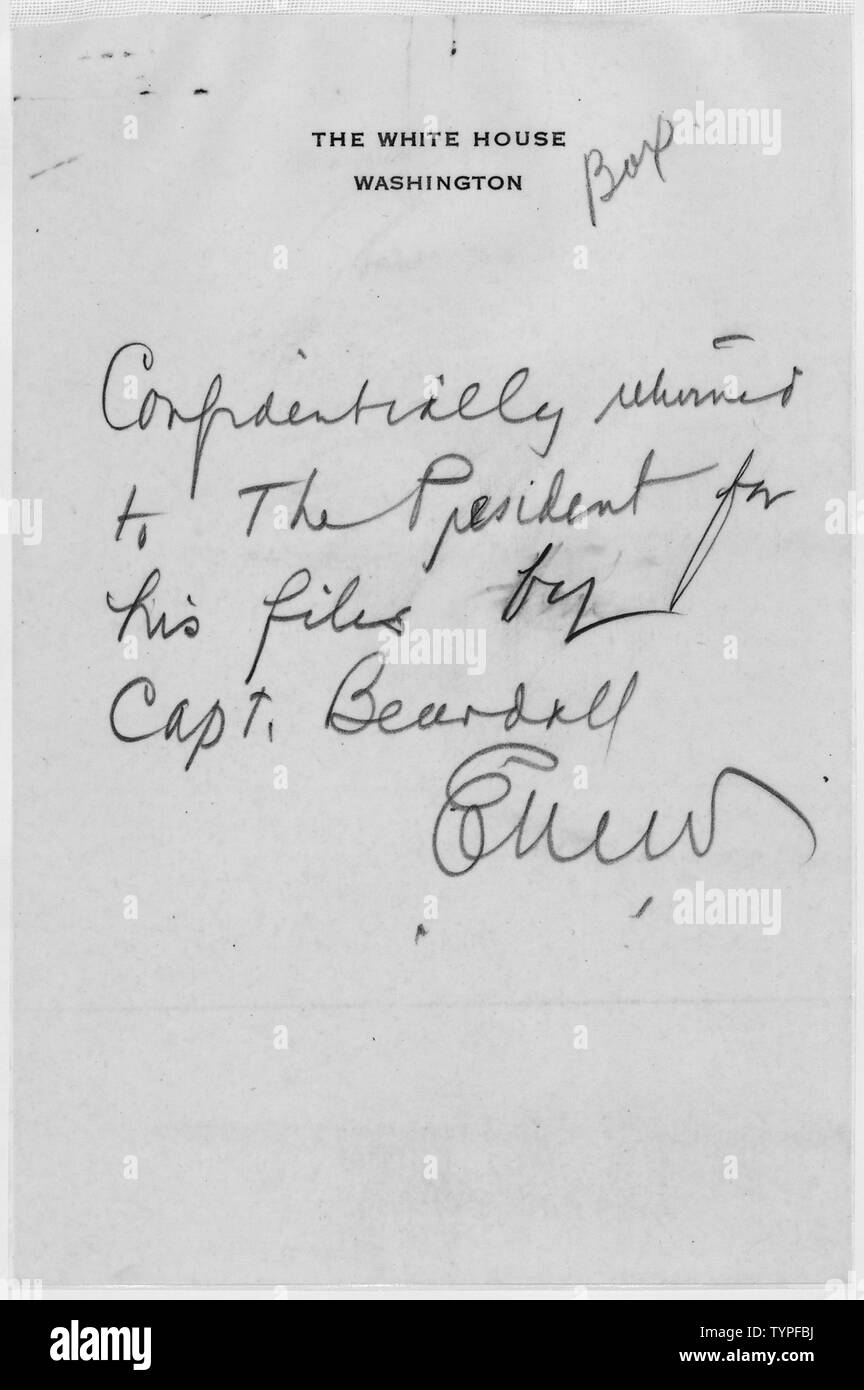 THE WHITE HOUSE
WASHINGTON
Box
Confidentially returned
to The President for
his files by
Capt. Beardall
alamy
Image ID: TYPFBJ
www.alamy.com